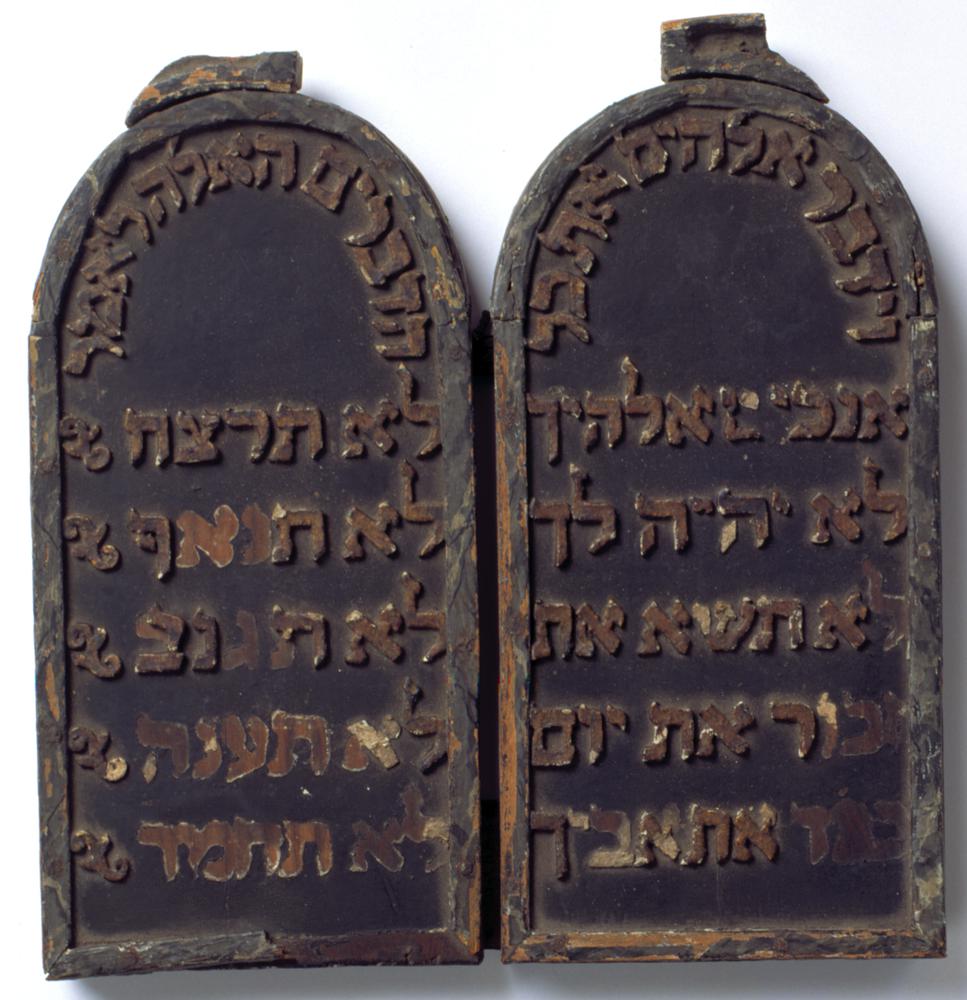 וידבר אלהים את כל
אנכי יי אלהיך
לא יהיה לך
לא תשא את
זכור את יום
כבד את אביך
הדברים האלה לאמר
לא תרצח
לא תנאף
לא תגנב
לא תענה
לא תחמד